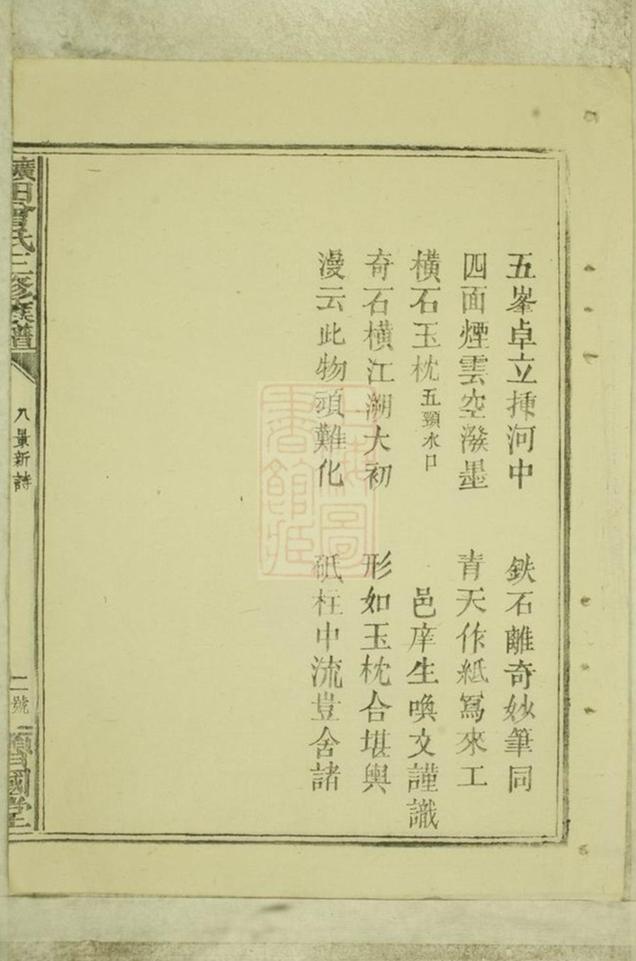 五峯卓立揷河中　鉄石離奇妙筆同
四面煙雲空潑墨　青天作紙寫來工
橫石玉枕五頸水口　邑庠生喚文謹識
奇石橫江溯大初　形如玉枕合堪輿
漫云此物頑難化　砥柱中流豈舍諸
田曾氏三修族譜
八景新詩
二號
國堂